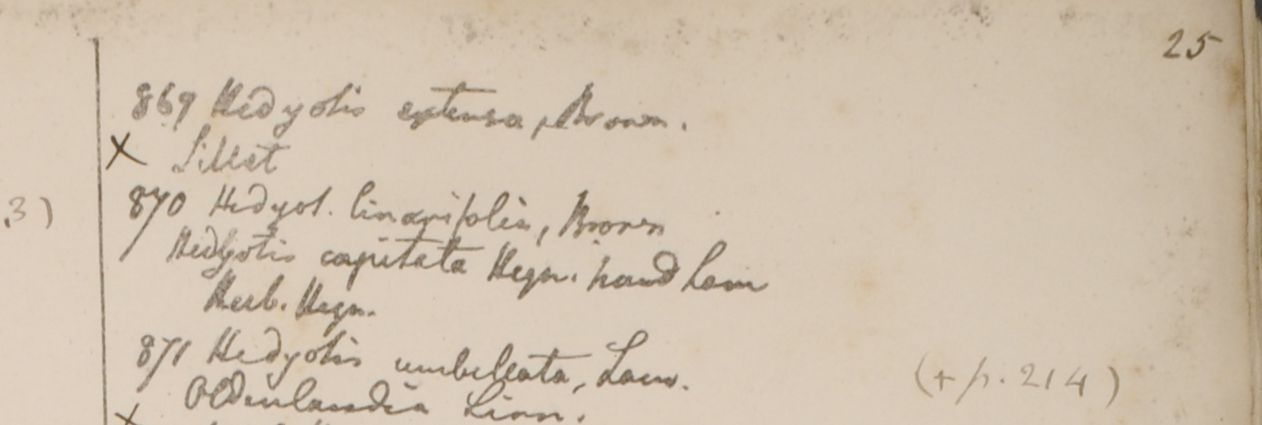 25
869 Hedyotis extensa, Brown.
× Sillet
870 Hedyot. linarifolia, Brown
3)
Hedyotis capitata Heyn. haud Lam
Herb. Heyn.
871 Hedyotis umbellata, Lam.
(+ p. 214)
Oldenlandia Linn.
×